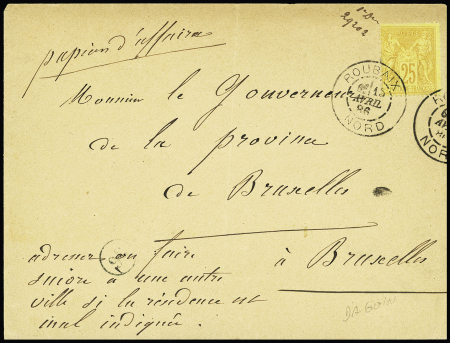 papiers d'affaire
25
ROUBAIX
AVRIL
86
NORD
NORD
Monsieur le Gouverneur
de la province
de Bruxelles
à Bruxelles
adresser ou faire
suivre à une autre
ville si la résidence est
mal indiquée.